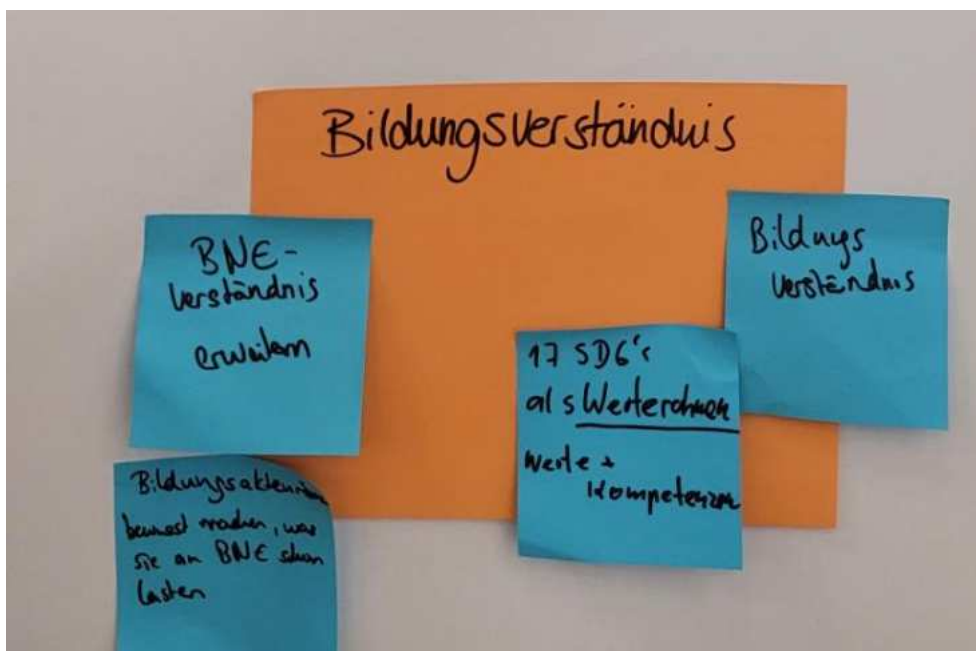 Bildungsverständnis
BNE-
Verständnis
erweitern
Bildungs
verständnis
17 SDG's
als Werterahmen
Werte +
Kompetenzen
bewusst machen, was
sie an BNE schon